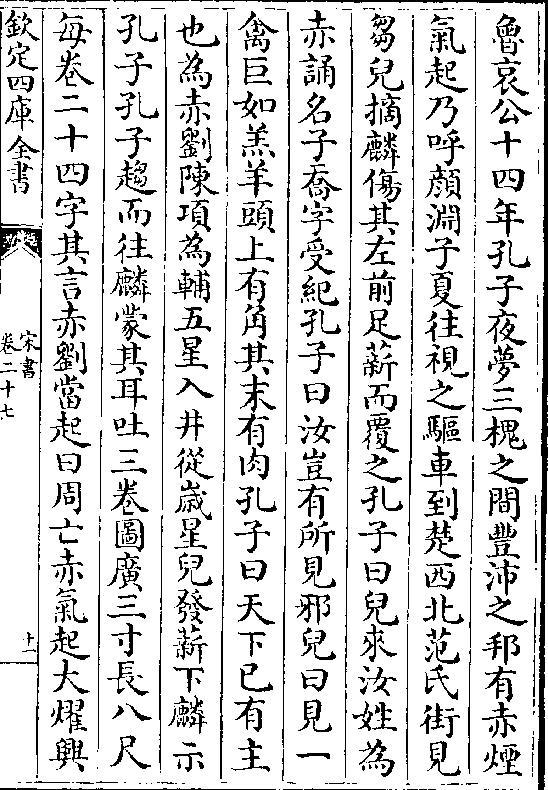 魯哀公十四年孔子夜夢三槐之間豐沛之邦有赤煙
氣起乃呼顏淵子夏往視之驅車到楚西北范氏街見
芻兒摘麟傷其左前足薪而覆之孔子曰兒來汝姓為
赤誦名子喬字受紀孔子曰汝豈有所見邪兒曰見一
禽巨如羔羊頭上有角其末有肉孔子曰天下已有主
也為赤劉陳項為輔五星入井從歲星兒發薪下麟示
孔子孔子趨而往麟蒙其耳吐三卷圖廣三寸長八尺
每卷二十四字其言赤劉當起曰周亡赤氣起大燿興
欽定四庫全書
宋書
卷二十七
十一